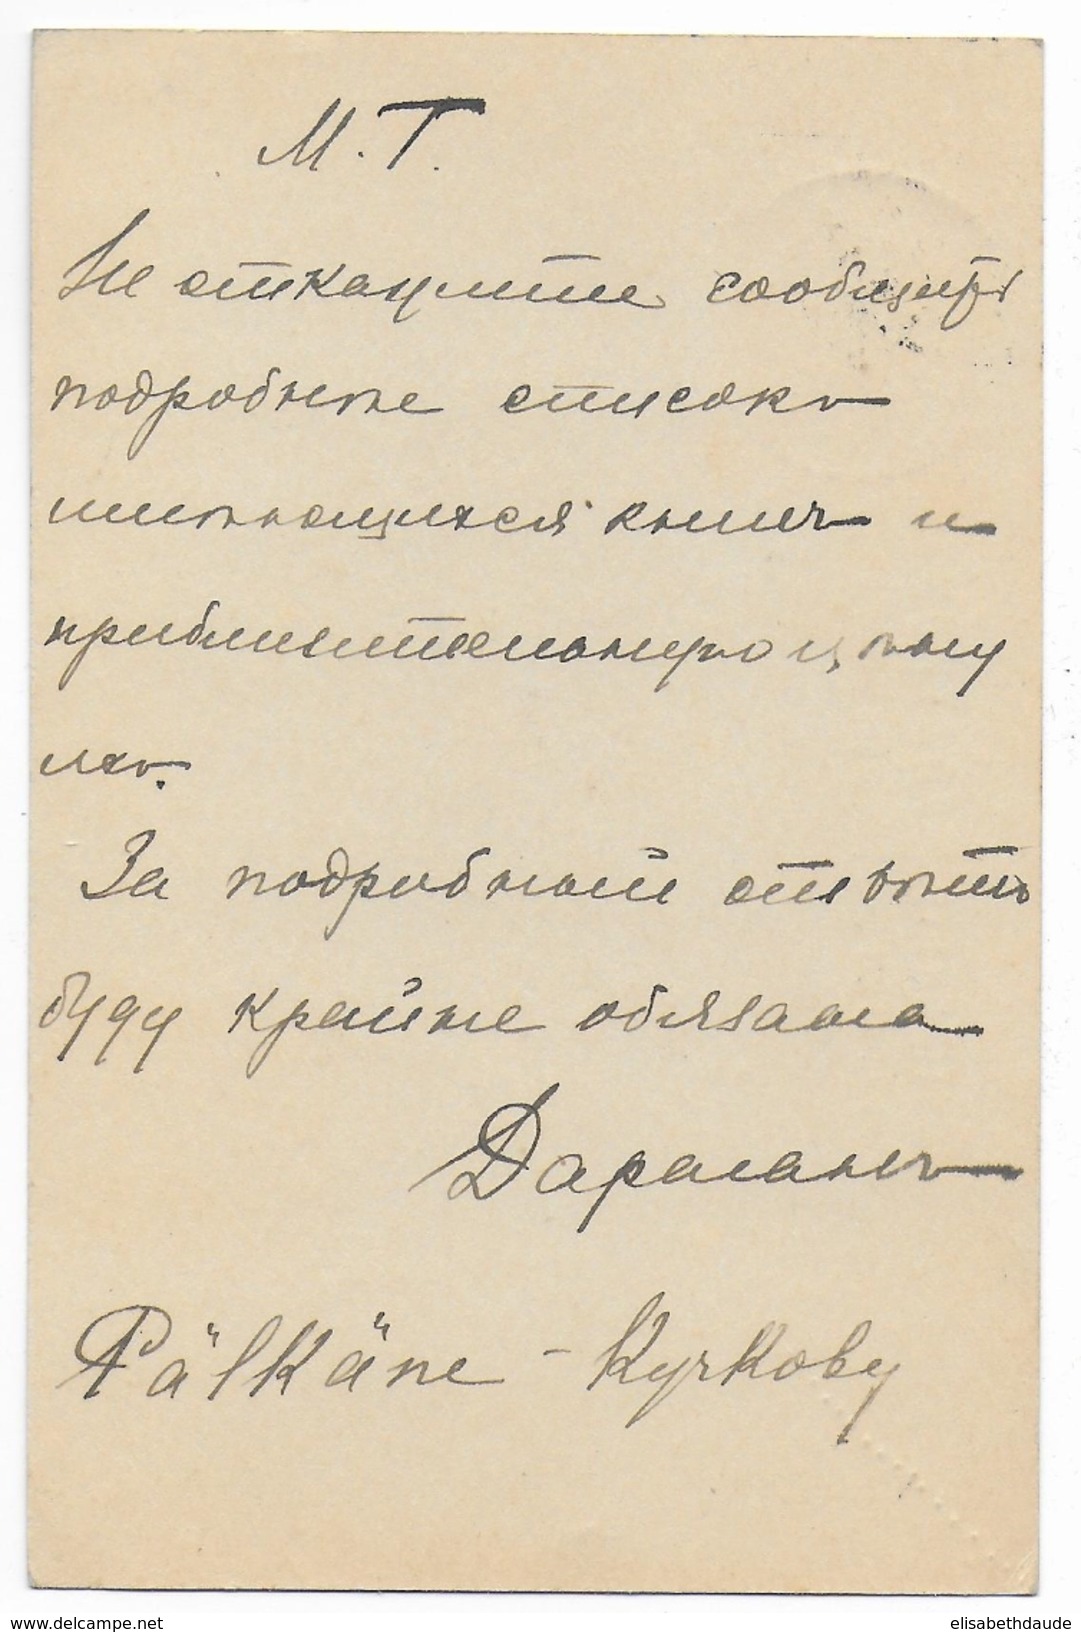 М. Г.
Не откажите сообщить
подробные списокъ
имѣющихся книгъ и
приблизительную цѣну
ихъ.
За подробный отвѣтъ
буду крайне обязана
Дараганъ
Pälkäne - Kyrkoby
www.delcampe.net
elisabethdaude